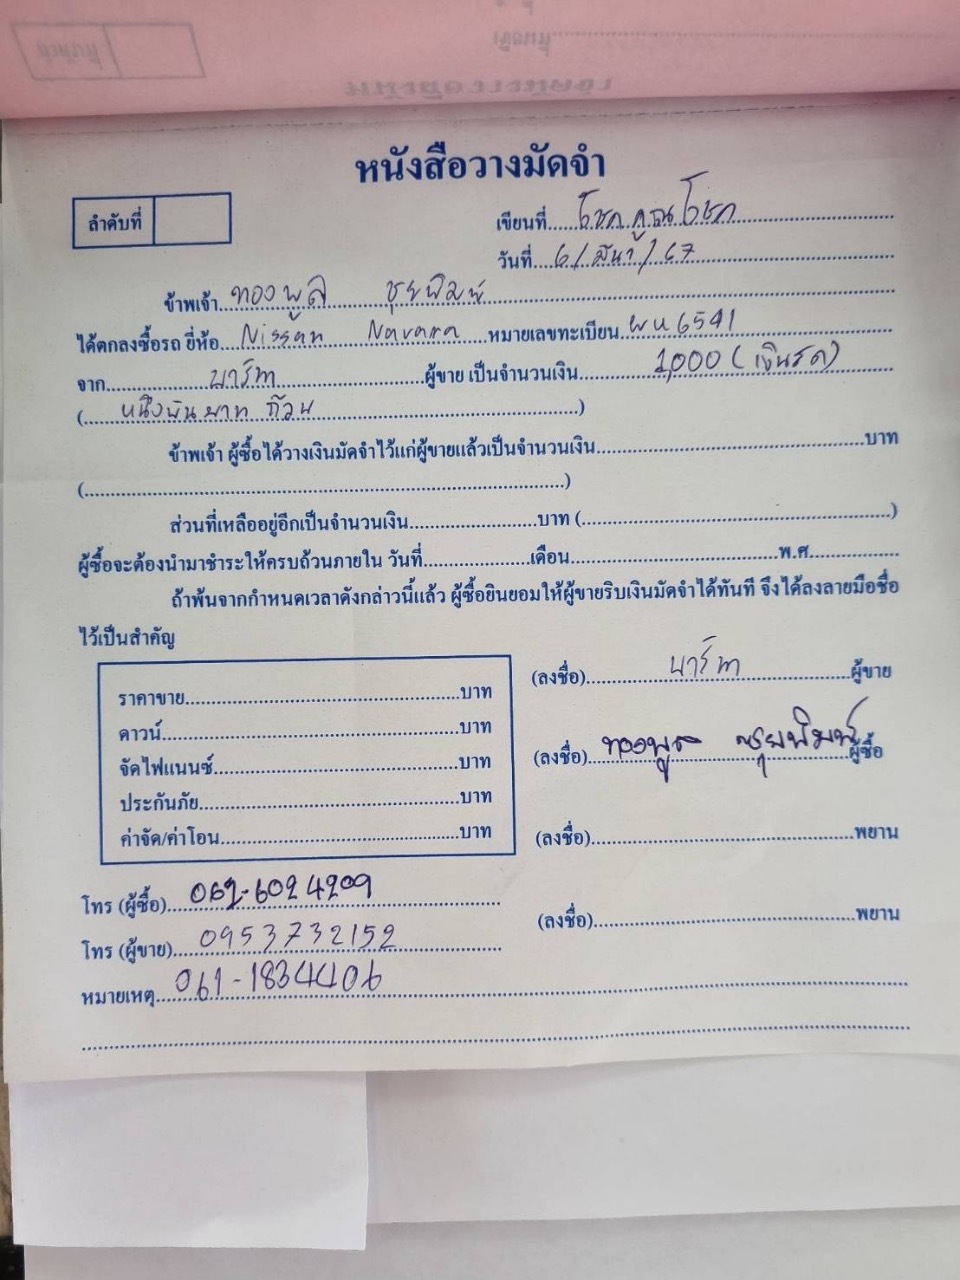 หนังสือวางมัดจำ
ลำดับที่
เขียนที่ โชคคูณโชค
วันที่ 6/มีนา/67
ข้าพเจ้า ทองพูล ชุยพิมพ์
ได้ตกลงซื้อรถ ยี่ห้อ Nissan Navara หมายเลขทะเบียน ผน6591
จาก ผู้ขาย เป็นจำนวนเงิน 1,000 (เงินสด)
(หนึ่งพันบาทถ้วน)
ข้าพเจ้า ผู้ซื้อได้วางเงินมัดจำไว้แก่ผู้ขายแล้วเป็นจำนวนเงิน บาท
( )
ส่วนที่เหลืออยู่อีกเป็นจำนวนเงิน บาท ( )
ผู้ซื้อจะต้องนำมาชำระให้ครบถ้วนภายใน วันที่ เดือน พ.ศ.
ถ้าพ้นจากกำหนดเวลาดังกล่าวนี้แล้ว ผู้ซื้อยินยอมให้ผู้ขายริบเงินมัดจำได้ทันที จึงได้ลงลายมือชื่อ
ไว้เป็นสำคัญ
ราคาขาย บาท
ดาวน์ บาท
จัดไฟแนนซ์ บาท
ประกันภัย บาท
ค่าจัด/ค่าโอน บาท
(ลงชื่อ) ผู้ขาย
(ลงชื่อ) ทองพูล ชุยพิมพ์ ผู้ซื้อ
(ลงชื่อ) พยาน
(ลงชื่อ) พยาน
โทร (ผู้ซื้อ) 062-6024209
โทร (ผู้ขาย) 0953732152
หมายเหตุ 061-1834406